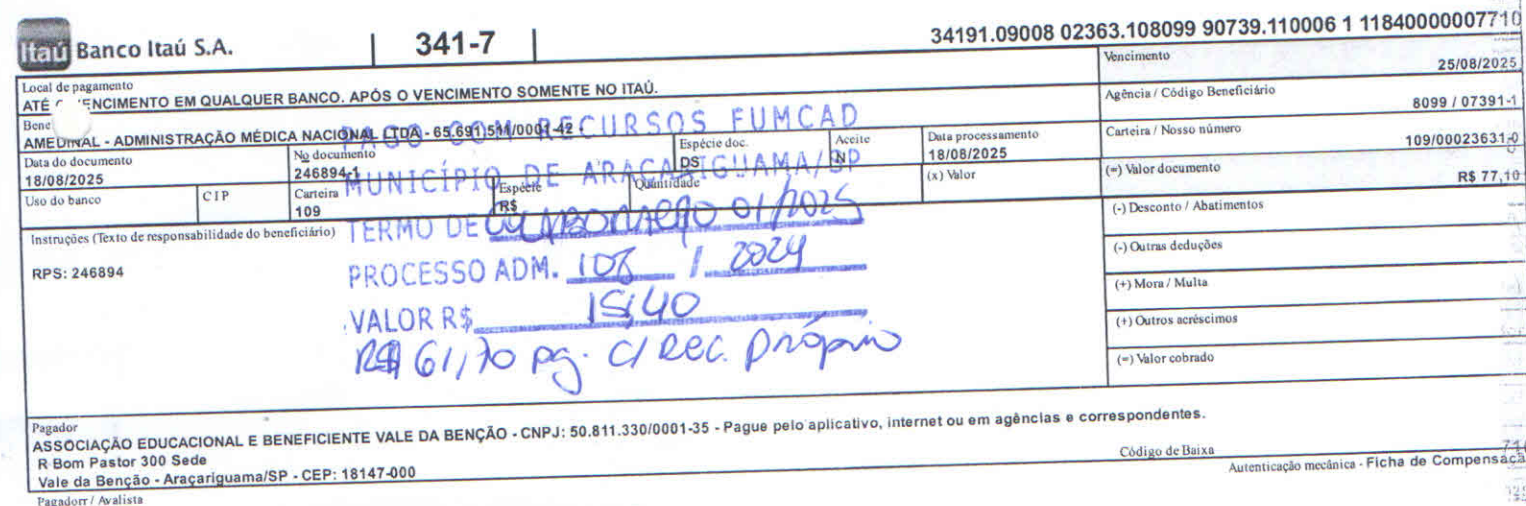 Itaú Banco Itaú S.A. | 341-7 | 34191.09008 02363.108099 90739.110006 1 11840000007710
Local de pagamento
ATÉ VENCIMENTO EM QUALQUER BANCO. APÓS O VENCIMENTO SOMENTE NO ITAÚ.
Vencimento
25/08/2025
Bene
AMEDINAL - ADMINISTRAÇÃO MÉDICA NACIONAL LTDA - 65.691.511/0001-42
Agência / Código Beneficiário
8099 / 07391-1
PAGO COM RECURSOS FUMCAD
Data do documento
18/08/2025
No documento
246894-1
Espécie doc.
DS
Aceite
N
Data processamento
18/08/2025
Carteira / Nosso número
109/00023631-0
MUNICÍPIO DE ARAÇARIGUAMA/SP
Uso do banco
CIP
Carteira
109
Espécie
R$
Quantidade
(x) Valor
(=) Valor documento
R$ 77,10
Instruções (Texto de responsabilidade do beneficiário)
RPS: 246894
TERMO DE COLABORAÇÃO 01/2025
PROCESSO ADM. 108 / 2024
VALOR R$ 15,40
R$ 61,70 pg. c/ Rec. próprio
(-) Desconto / Abatimentos
(-) Outras deduções
(+) Mora / Multa
(+) Outros acréscimos
(=) Valor cobrado
Pagador
ASSOCIAÇÃO EDUCACIONAL E BENEFICIENTE VALE DA BENÇÃO - CNPJ: 50.811.330/0001-35 - Pague pelo aplicativo, internet ou em agências e correspondentes.
R Bom Pastor 300 Sede
Vale da Benção - Araçariguama/SP - CEP: 18147-000
Código de Baixa
Autenticação mecânica - Ficha de Compensação
Pagadorr / Avalista